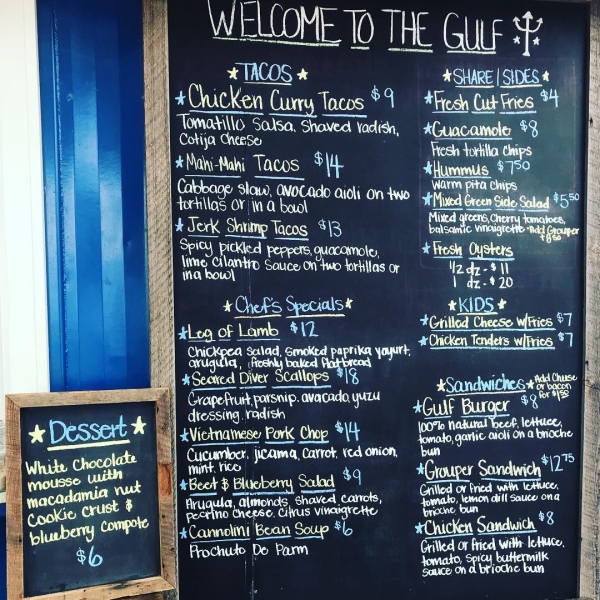 WELCOME TO THE GULF
TACOS
Chicken Curry Tacos $9
Tomatillo Salsa, Shaved radish,
Cotija Cheese
Mahi-Mahi Tacos $14
Cabbage slaw, avocado aioli on two
tortillas or in a bowl
Jerk Shrimp Tacos $13
Spicy pickled peppers, guacamole,
lime cilantro sauce on two tortillas or
in a bowl
Chef's Specials
Leg of Lamb $12
Chickpea salad, smoked paprika yogurt,
arugula, freshly baked flatbread
Seared Diver Scallops $18
Grapefruit, parsnip, avocado, yuzu
dressing, radish
Vietnamese Pork Chop $14
Cucumber, jicama, carrot, red onion,
mint rice
Beet & Blueberry Salad $9
Arugula, almonds, shaved carrots,
pecorino cheese, citrus vinaigrette
Cannolini Bean Soup $6
Prochuto De Parm
SHARE/SIDES
Fresh Cut Fries $4
Guacamole $8
Fresh tortilla chips
Hummus $7.50
Warm pita chips
Mixed Green Side Salad $5.50
Mixed greens, Cherry tomatoes,
balsamic vinaigrette *Add Grouper
+8.50
Fresh Oysters
1/2 dz - $11
1 dz - $20
KIDS
Grilled Cheese w/Fries $7
Chicken Tenders w/Fries $7
Sandwiches *Add Cheese
or bacon
for $1.50
Gulf Burger $8
100% natural beef, lettuce,
tomato, garlic aioli on a brioche
bun
Grouper Sandwich $12.75
Grilled or fried with lettuce,
tomato, lemon dill sauce on a
brioche bun
Chicken Sandwich $8
Grilled or fried with lettuce,
tomato, spicy buttermilk
sauce on a brioche bun
Dessert
White Chocolate
mousse with
macadamia nut
Cookie crust &
blueberry compote
$6